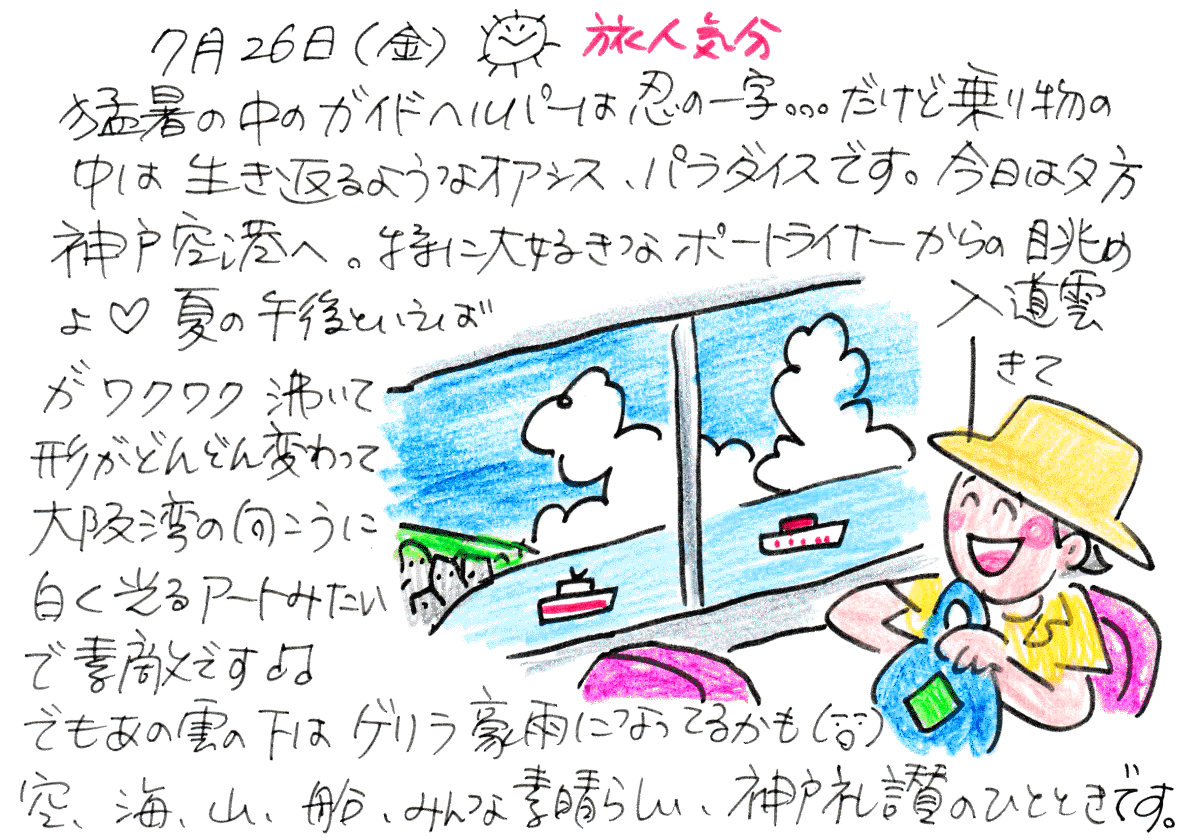 7月26日(金) 旅人気分
猛暑の中のガイドヘルパーは忍の一字。。。だけど乗り物の
中は生き返るようなオアシス、パラダイスです。今日は夕方
神戸空港へ。特に大好きなポートライナーからの眺め
よ♡夏の午後といえば
入道雲
きて
がワクワク沸いて
形がどんどん変わって
大阪湾の向こうに
白く光るアートみたい
で素敵です♫
でもあの雲の下はゲリラ豪雨になってるかも
空、海、山、船、みんな素晴らしい、神戸礼讃のひとときです。